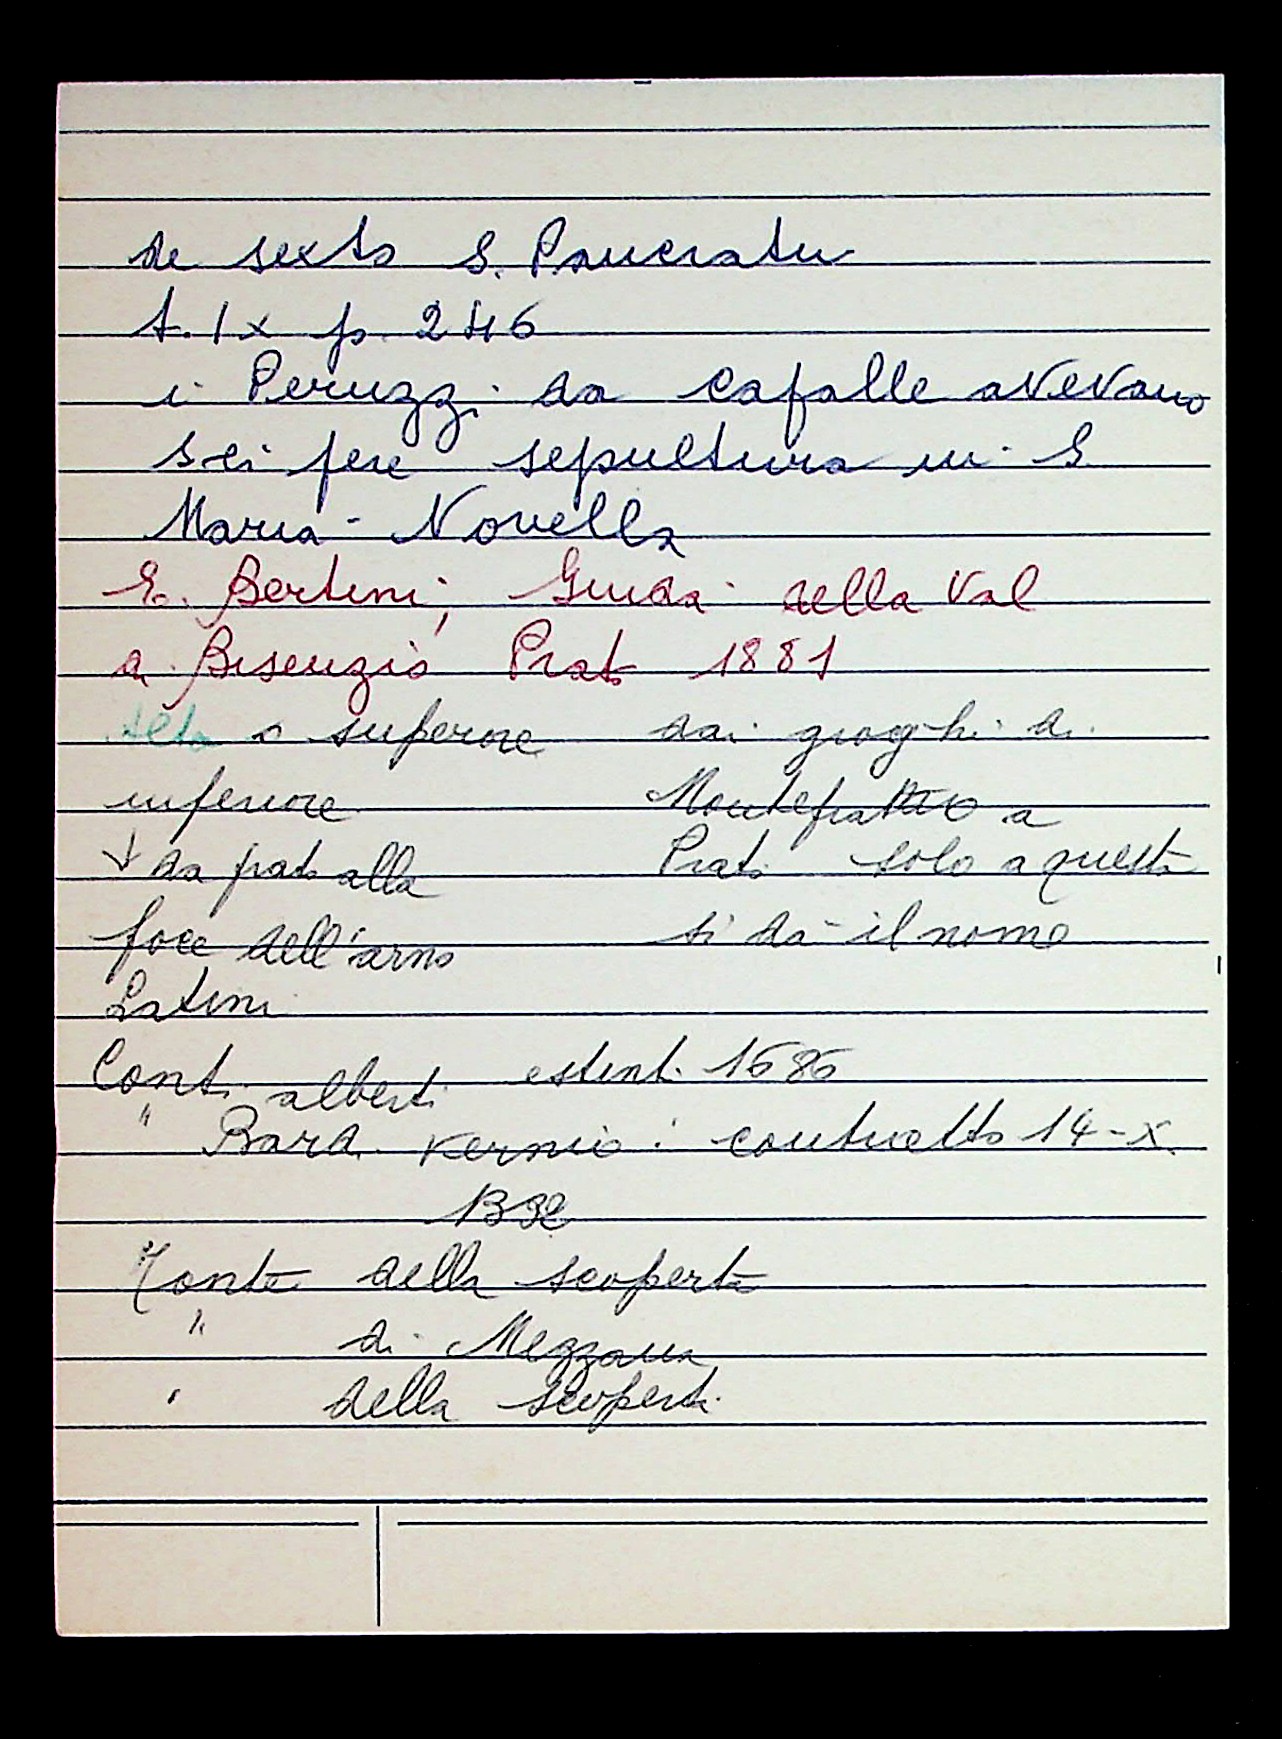 de sexto S. Pancratii
t. IX p. 246
i Peruzzi da Cafalle avevano
sei fere sepultura in S.
Maria Novella
E. Bertini, Guida della Val
di Bisenzio Prato 1881
Alta o superiore dai gioghi di
inferiore Montepiano a
↓ da prato alla Prato solo a questa
foce dell'arno si dà il nome
Latini
Conti alberti estinti 1686
" Bardi Vernio: contratto 14-X.
1332
Monte della scoperta
" di Mezzana
" della scoperta